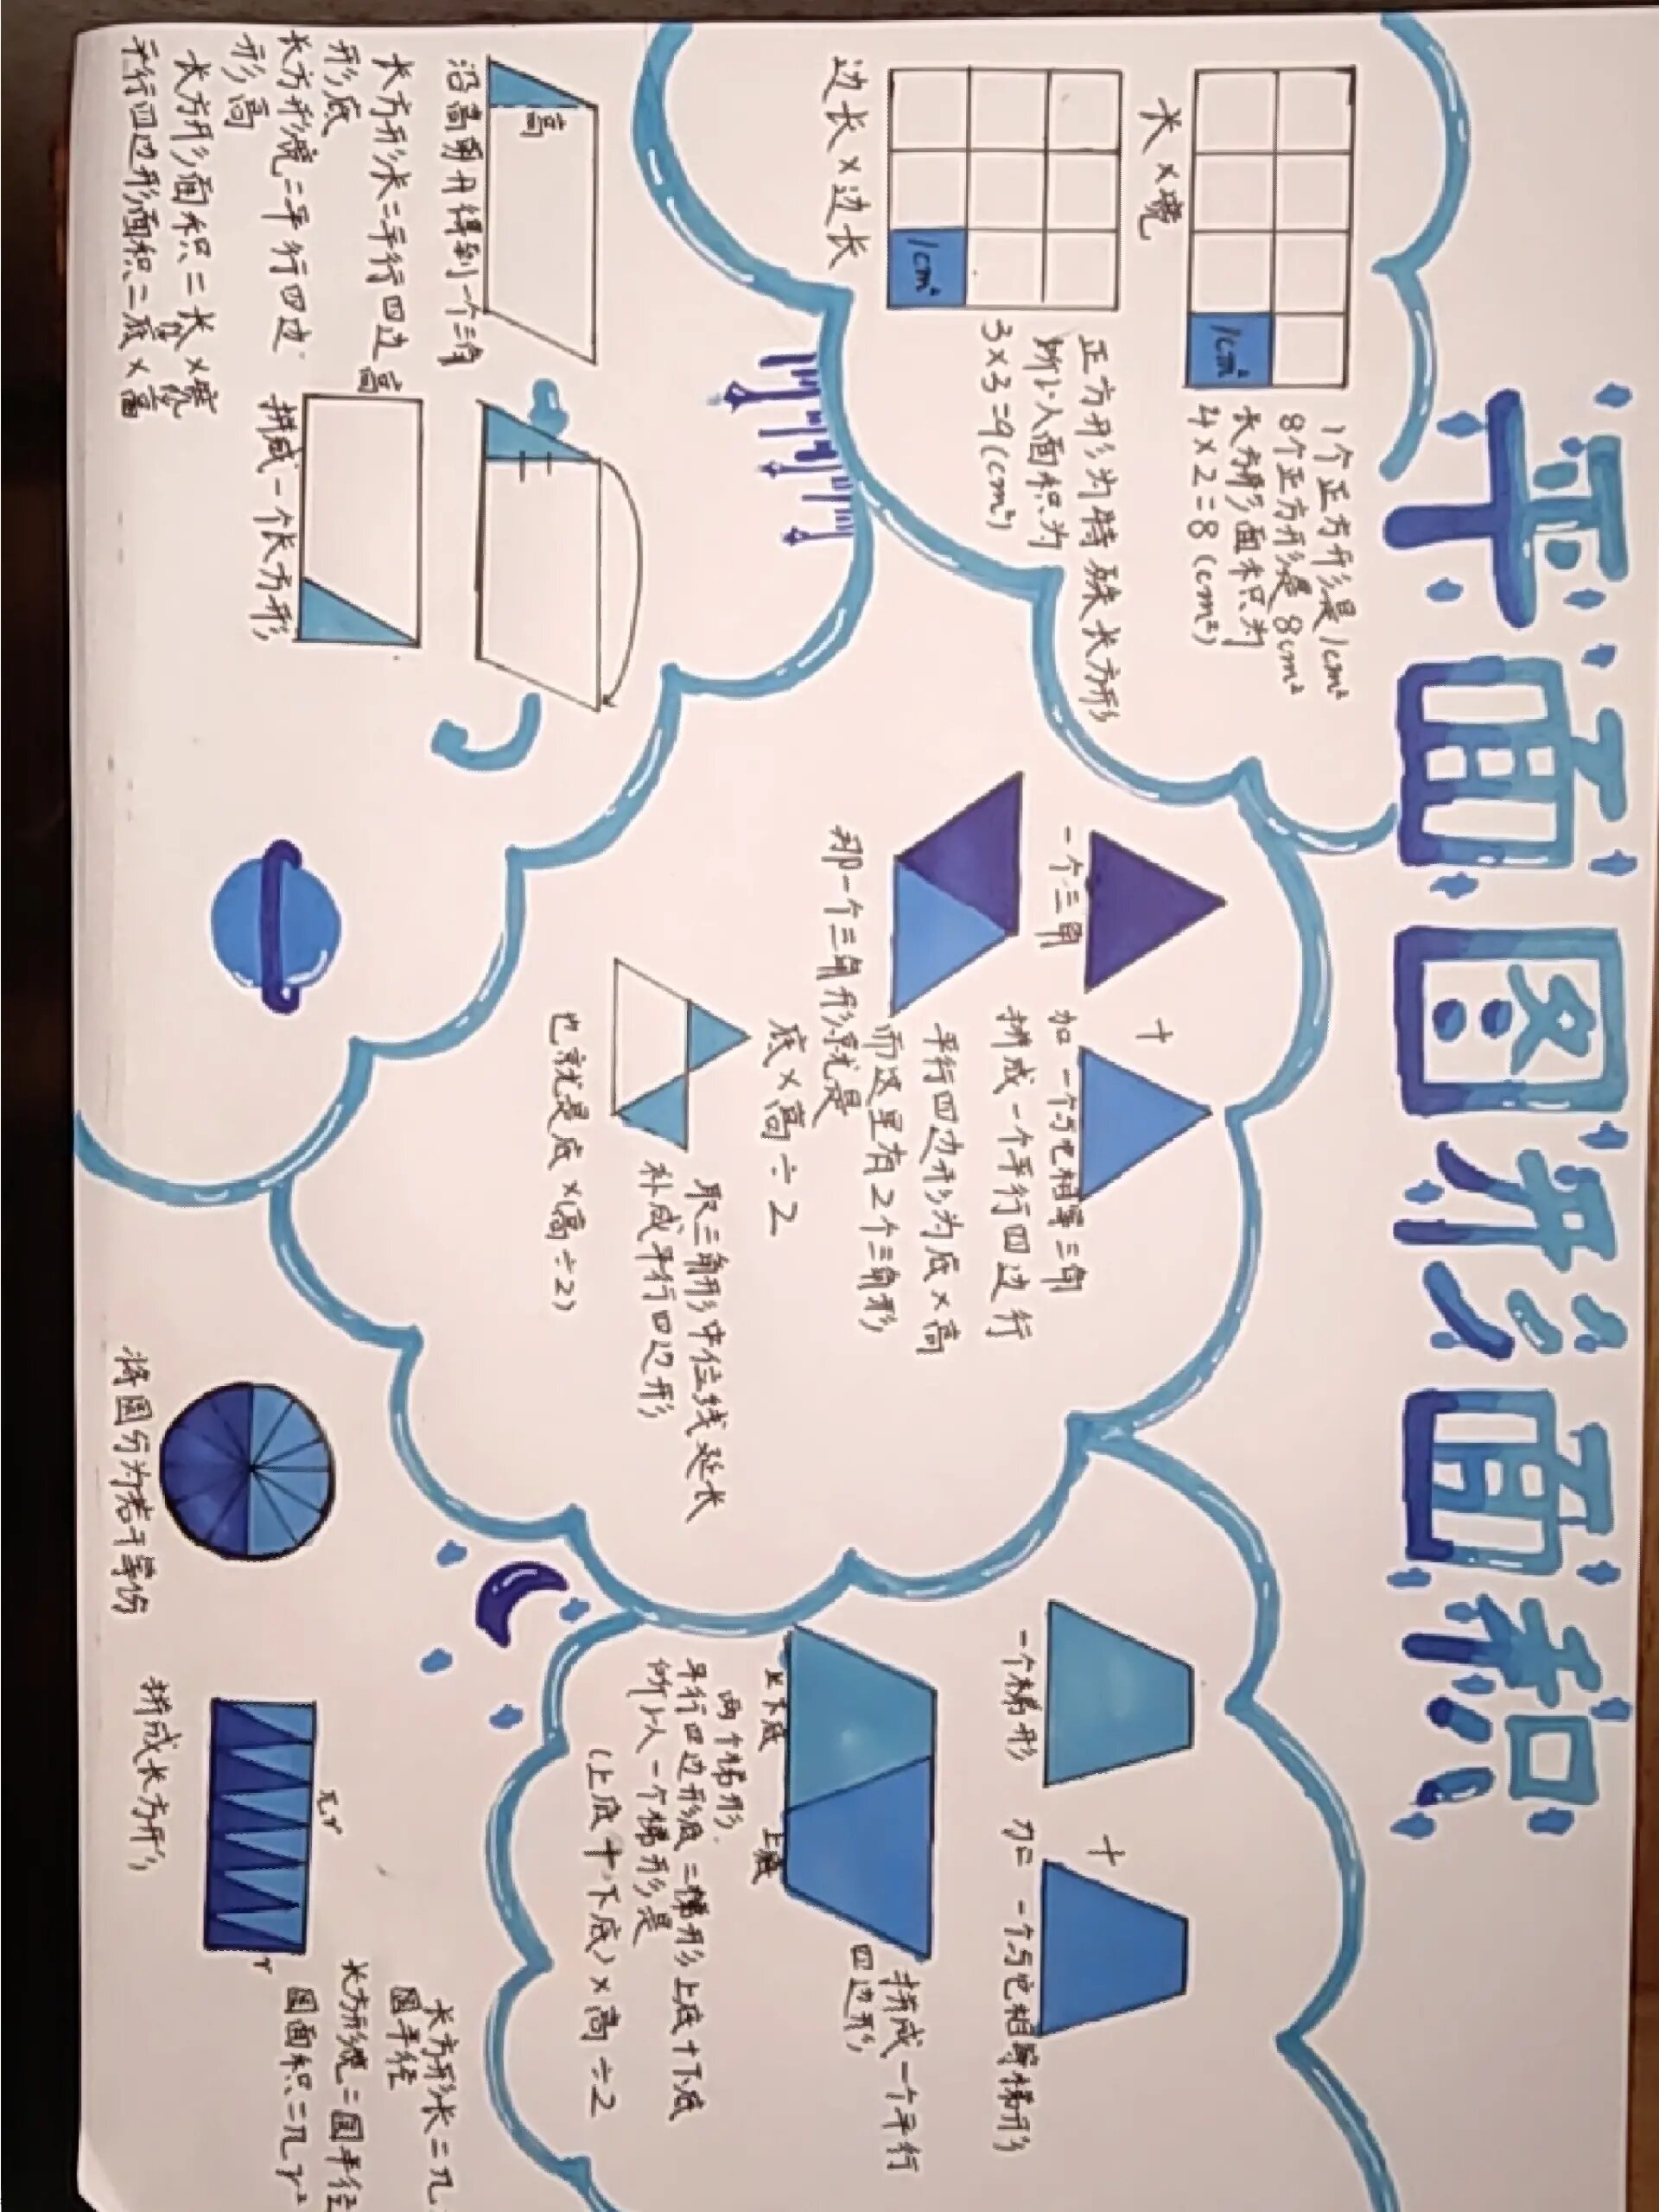 平面图形面积
长×宽
1cm²
1个正方形是1cm²
8个正方形是8cm²
长方形面积为
4×2=8(cm²)
边长×边长
1cm²
正方形为特殊长方形
所以面积为
3×3=9(cm²)
高
沿高剪开得到一个三角
长方形长=平行四边
形底
长方形宽=平行四边
形高
长方形面积=长×宽
平行四边形面积=底×高
高
拼成一个长方形
一个三角
+
加一个与它相等三角
拼成一个平行四边行
平行四边形为底×高
而这里有2个三角形
那一个三角形就是
底×高÷2
取三角形中位线延长
补成平行四边形
也就是底×(高÷2)
一个梯形
+
加一个与它相等梯形
拼成一个平行
四边形
下底
上底
两个梯形.
平行四边形底=梯形上底+下底
所以一个梯形是
(上底+下底)×高÷2
将圆分为若干等份
πr
r
拼成长方形
长方形长=π
圆半径
长方形宽=圆半径
圆面积=πr²